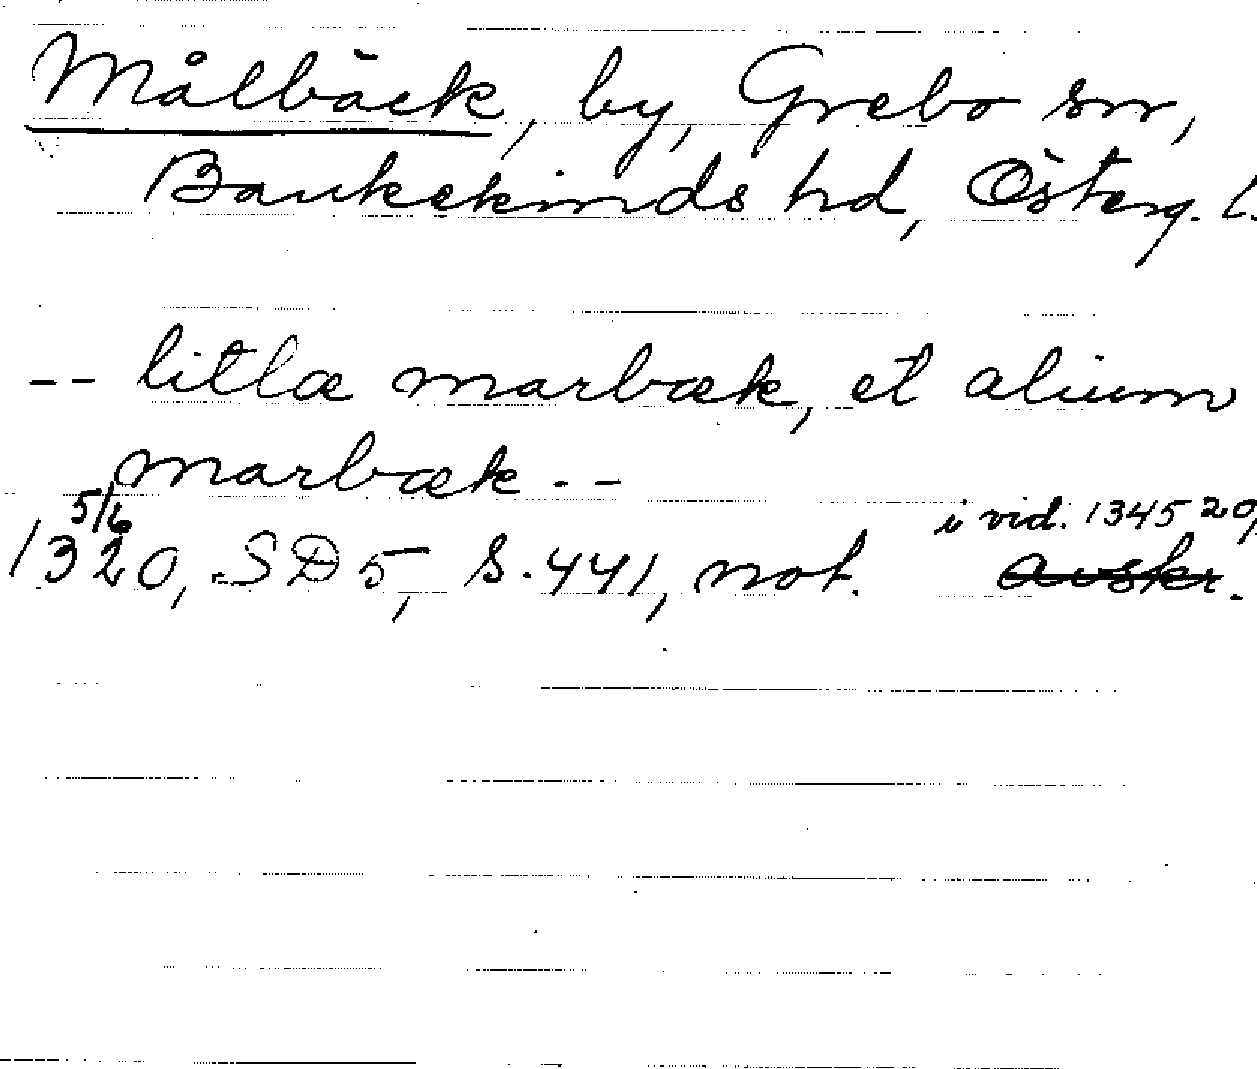 Målbäck, by, Grebo sn,
Bankekinds hd, Österg. l.
-- litlæ marbæk, et alium
marbæk --
5/6 i vid. 1345 20/
1320, SD 5, S. 441, not. avskr.